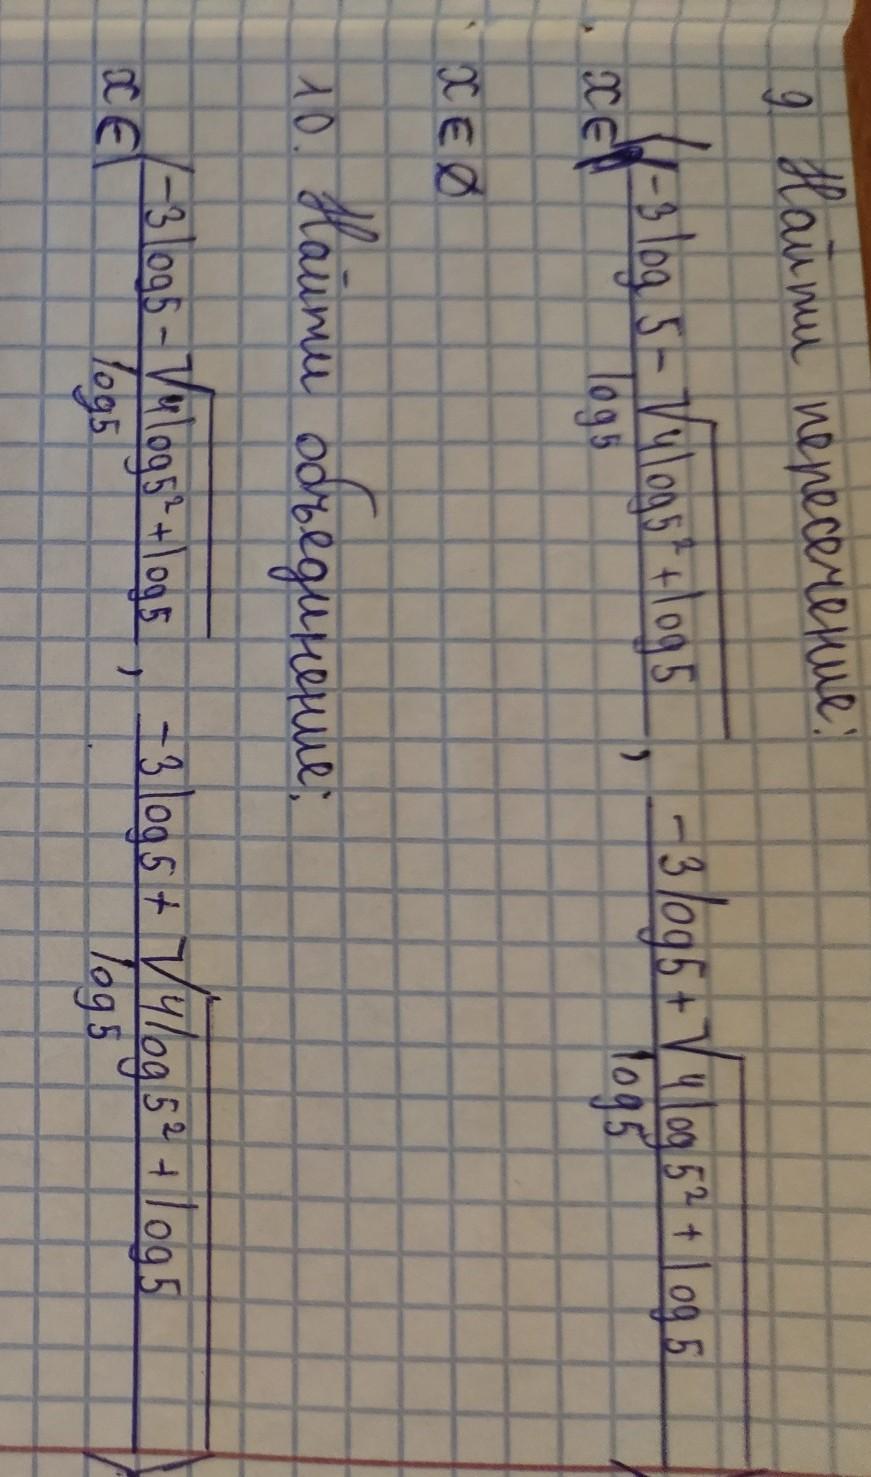 9 Найти пересечение:
x ∈ (-3log5 - √4log5² + log5 / log5 , -3log5 + √4log5² + log5 / log5)
x ∈ ∅
10. Найти объединение:
x ∈ (-3log5 - √4log5² + log5 / log5 , -3log5 + √4log5² + log5 / log5)